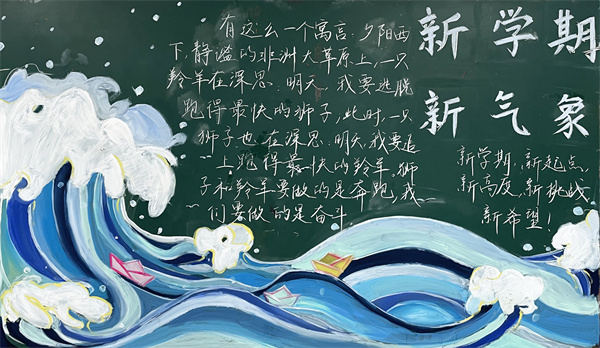 有这么一个寓言：夕阳西
下，静谧的非洲大草原上，一只
羚羊在深思：明天，我要逃脱
跑得最快的狮子，此时，一只
狮子也在深思：明天，我要追
上跑得最快的羚羊，狮
子和羚羊要做的是奔跑，我
们要做的是奋斗
新学期
新气象
新学期，新起点，
新高度，新挑战，
新希望！